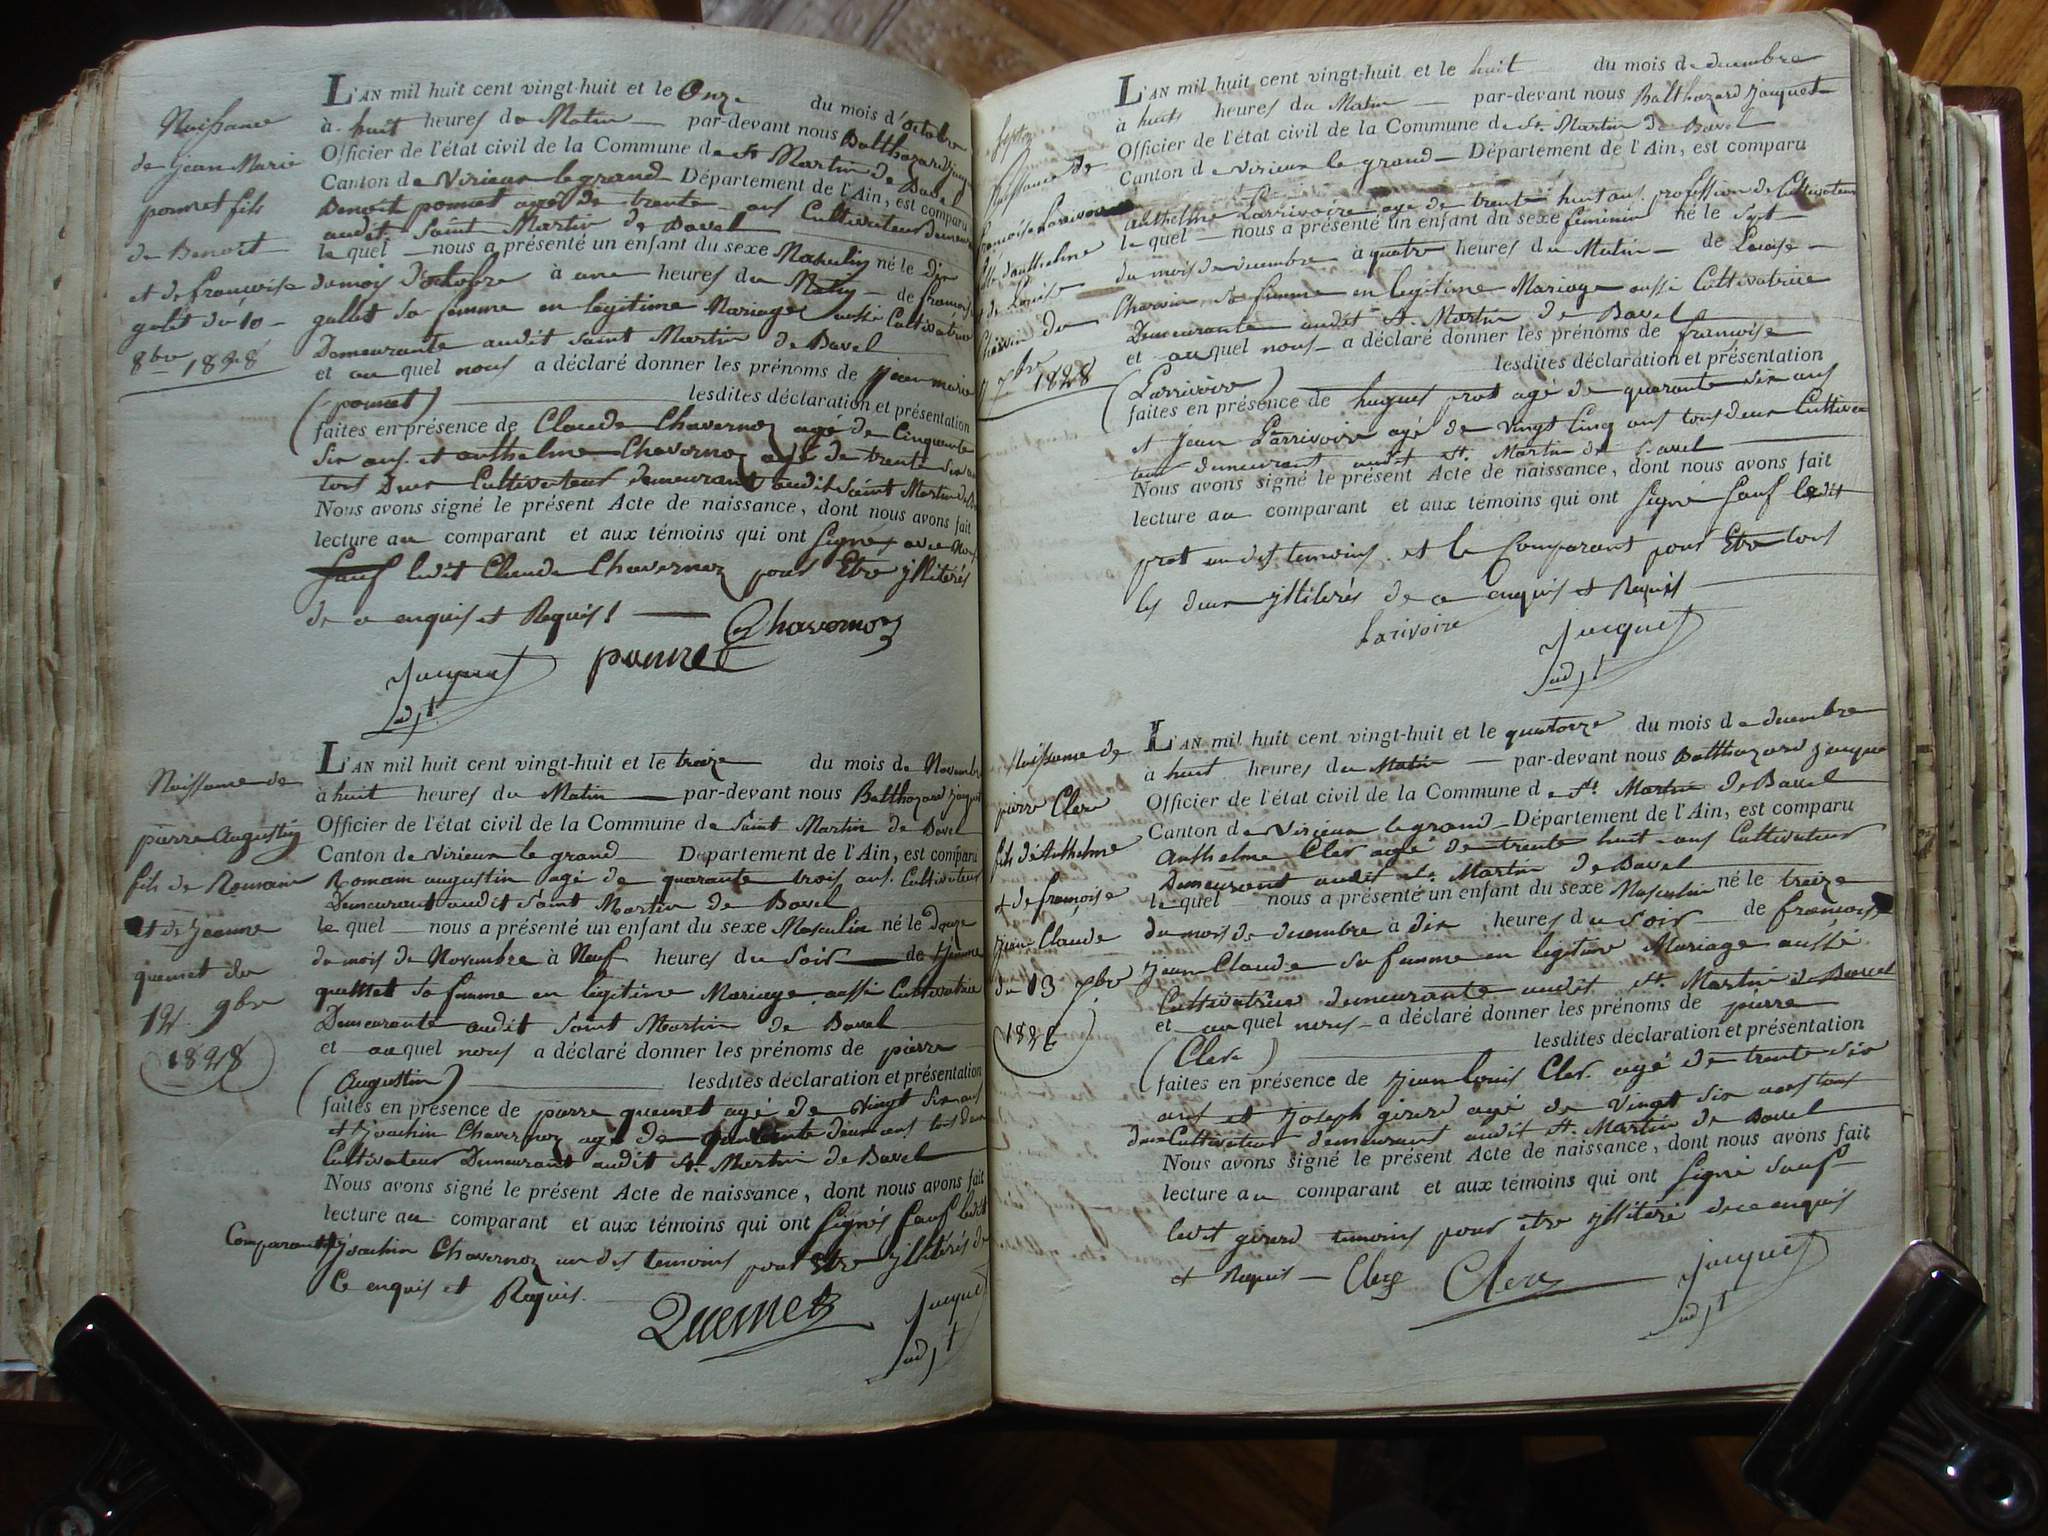 Naissance
de jean Marie
ponnet fils
de Benoit
et de françoise
galet du 10
8bre 1828
L'AN mil huit cent vingt-huit et le Onze du mois d'octobre
à huit heures du Matin par-devant nous Balthazard jacquet
Officier de l'état civil de la Commune de St Martin de Bavel
Canton de Virieux le grand Département de l'Ain, est comparu
Benoit ponnet agé de trente ans Cultivateur demeurant
audit Saint Martin de Bavel
le quel nous a présenté un enfant du sexe Masculin né le dix
du mois d'octobre à une heures du Matin de françoise
gallet sa femme en legitime Mariage aussi Cultivatrice
Demeurante audit Saint Martin de Bavel
et au quel nous a déclaré donner les prénoms de jean marie
(ponnet) lesdites déclaration et présentation
faites en présence de Claude Chavernoz age de Cinquante
six ans et anthelme Chavernoz agé de trente six ans
tous Deux Cultivateur demeurant audit Saint Martin de
Nous avons signé le présent Acte de naissance, dont nous avons fait
lecture au comparant et aux témoins qui ont Signé avec Nous
Sauf ledit Claude Chavernoz pour Etre yllitérés
de ce enquis et Requis !
Chavernoz
Jacquet ponnet
adjt
Naissance de
pierre Augustin
fils de Romain
et de Jeanne
quemet du
12 9bre
1828
L'AN mil huit cent vingt-huit et le treize du mois de Novembre
à huit heures du Matin par-devant nous Balthazard jacquet
Officier de l'état civil de la Commune de Saint Martin de Bavel
Canton de Virieux le grand Département de l'Ain, est comparu
Romain augustin agé de quarante trois ans Cultivateur
Demeurant audit Saint Martin de Bavel
le quel nous a présenté un enfant du sexe Masculin né le Douze
du mois de Novembre à Neuf heures du Soir de Jeanne
quemet sa femme en legitime Mariage aussi Cultivatrice
Demeurante audit Saint Martin de Bavel
et au quel nous a déclaré donner les prénoms de pierre
(Augustin) lesdites déclaration et présentation
faites en présence de pierre quemet agé de Vingt six ans
et Joachin Chavernoz agé de deux ans tous deux
Cultivateur Demeurant audit St Martin de Bavel
Nous avons signé le présent Acte de naissance, dont nous avons fait
lecture au comparant et aux témoins qui ont Signés Sauf ledit
Comparant et Joachin Chavernoz un des temoins pour Etre yllitérés de
Ce enquis et Requis.
Quemet Jacquet
adjt
Naissance de
françoise Larivoire
fille d'anthelme
et de Louise
Charvin du
7 xbre 1828
L'AN mil huit cent vingt-huit et le huit du mois de decembre
à huits heures du Matin par-devant nous Balthazard jacquet
Officier de l'état civil de la Commune de St Martin de Bavel
Canton de Virieux le grand Département de l'Ain, est comparu
anthelme Larrivoire age de trente huit ans profession de Cultivateur
le quel nous a présenté un enfant du sexe feminin né le Sept
du mois de decembre à quatre heures du Matin de Louise
Charvin sa femme en legitime Mariage aussi Cultivatrice
Demeurante audit St Martin de Bavel
et au quel nous a déclaré donner les prénoms de francoise
(Larrivoire) lesdites déclaration et présentation
faites en présence de hugues prot agé de quarante six ans
et Jean Larrivoire agé de vingt Cinq ans tous deux Cultiva
teur demeurant audit St. Martin de Bavel
Nous avons signé le présent Acte de naissance, dont nous avons fait
lecture au comparant et aux témoins qui ont Signé Sauf ledit
prot un des temoins et le Comparant pour Etre tous
les deux yllitérés de ce enquis et Requis
Larivoire Jacquet
adjt
Naissance de
pierre Clerc
fils d'Anthelme
et de françoise
jean Claude
du 13 xbre
1828
L'AN mil huit cent vingt-huit et le quatorze du mois de decembre
à huit heures du Matin par-devant nous Balthazard jacquet
Officier de l'état civil de la Commune de St Martin de Bavel
Canton de Virieux le grand Département de l'Ain, est comparu
Anthelme Clerc agé de trente huit ans Cultivateur
Demeurant audit St. Martin de Bavel
le quel nous a présenté un enfant du sexe Masculin né le treize
du mois de decembre à dix heures du Soir de françoise
jean Claude sa femme en legitime Mariage aussi
Cultivatrice demeurante audit St. Martin de Bavel
et au quel nous a déclaré donner les prénoms de pierre
(Clerc) lesdites déclaration et présentation
faites en présence de jean louis Clerc agé de trente six
ans et joseph girerd agé de Vingt six ans tous
deux Cultivateur demeurant audit St. Martin de Bavel
Nous avons signé le présent Acte de naissance, dont nous avons fait
lecture au comparant et aux témoins qui ont Signé Sauf
ledit girerd temoins pour etre yllitéré de ce enquis
et Requis Clerc Clerc Jacquet
adjt